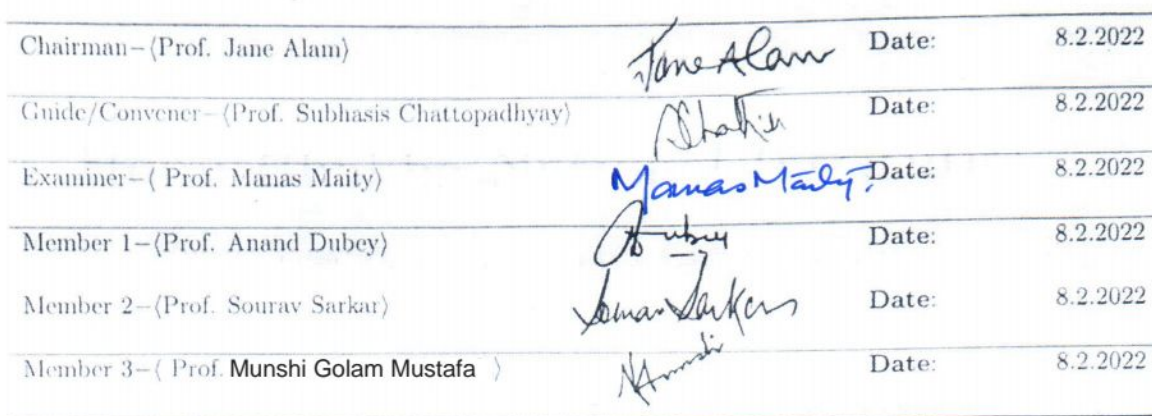 Chairman–(Prof. Jane Alam) Jane Alam Date: 8.2.2022
Guide/Convener–(Prof. Subhasis Chattopadhyay) Date: 8.2.2022
Examiner–( Prof. Manas Maity) Manas Maity. Date: 8.2.2022
Member 1–(Prof. Anand Dubey) Dubey Date: 8.2.2022
Member 2–(Prof. Sourav Sarkar) Sourav Sarkar Date: 8.2.2022
Member 3–( Prof. Munshi Golam Mustafa ) Date: 8.2.2022